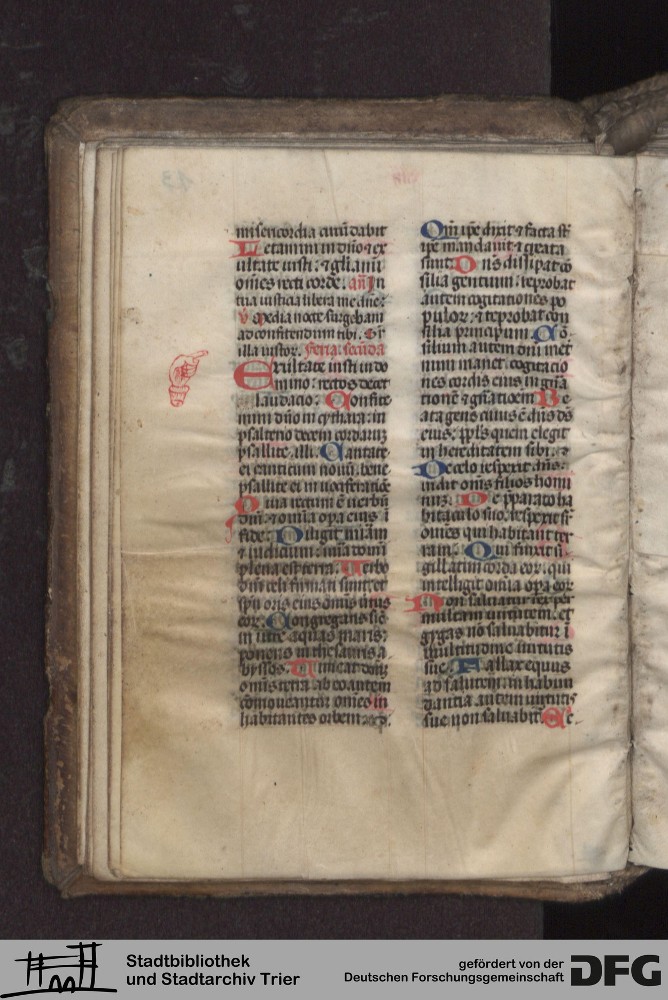 misericordia circūdabit
Letamini in dn̄o ⁊ ex
ultate iusti: ⁊ gl̄iami
om̄es recti corde. an̄ In
tua iusticia libera me dn̄e:
v̄ media nocte surgebam
ad confitendum tibi. Sr̄
illa iustor. feria. secūda
Exultate iusti in do
mino: rectos decet
laudacio. Confite
mini dn̄o in cythara: in
psalterio decem cordarū
psallite illi. Cantate
ei canticum nouū. bene
psallite ei in uociferacōe
Quia rectum ē uerbū
dn̄i: ⁊ om̄ia opa eius ī
fide. Diligit mīam
⁊ iudicium: mīa domī
plena est terra. Uerbo
dn̄i celi firmati sunt: et
spū oris eius om̄is uirtus
eor. Congregans sic̄
in utre aquas maris:
ponens in thesauris a
byssos. Timeat domū
om̄is terra: ab eo autem
comoueantur om̄es in
habitantes orbem.
Qm̄ ip̄e dixit ⁊ facta st̄
ip̄e mandauit ⁊ creata
sunt. Dn̄s dissipat cō
silia gentium: reprobat
autem cogitationes po
pulor. ⁊ reprobat con
silia principum. Cō
silium autem dn̄i in et
num manet: cogitacio
nes cordis eius in gn̄a
tionē ⁊ gn̄atioem Be
ata gens cuius ē dn̄s ds̄
eius: ppl̄s quem elegit
in hereditatem sibi.
De celo respexit dn̄s:
uidit om̄is filios homi
num. De p̄parato ha
bitaculo suo: respexit sr̄
om̄es qui habitant ter
ram. Qui finxit si
gillatim corda eor: qui
intelligit om̄ia opa eor
Non saluatur rex per
multam uirtutem: et
gygas nō saluabitur ī
multitudine uirtutis
sue. Fallax equus
ad salutem: in habun
dantia autem uirtutis
sue non saluabit̄ Ec
Stadtbibliothek
und Stadtarchiv Trier
gefördert von der
Deutschen Forschungsgemeinschaft
DFG